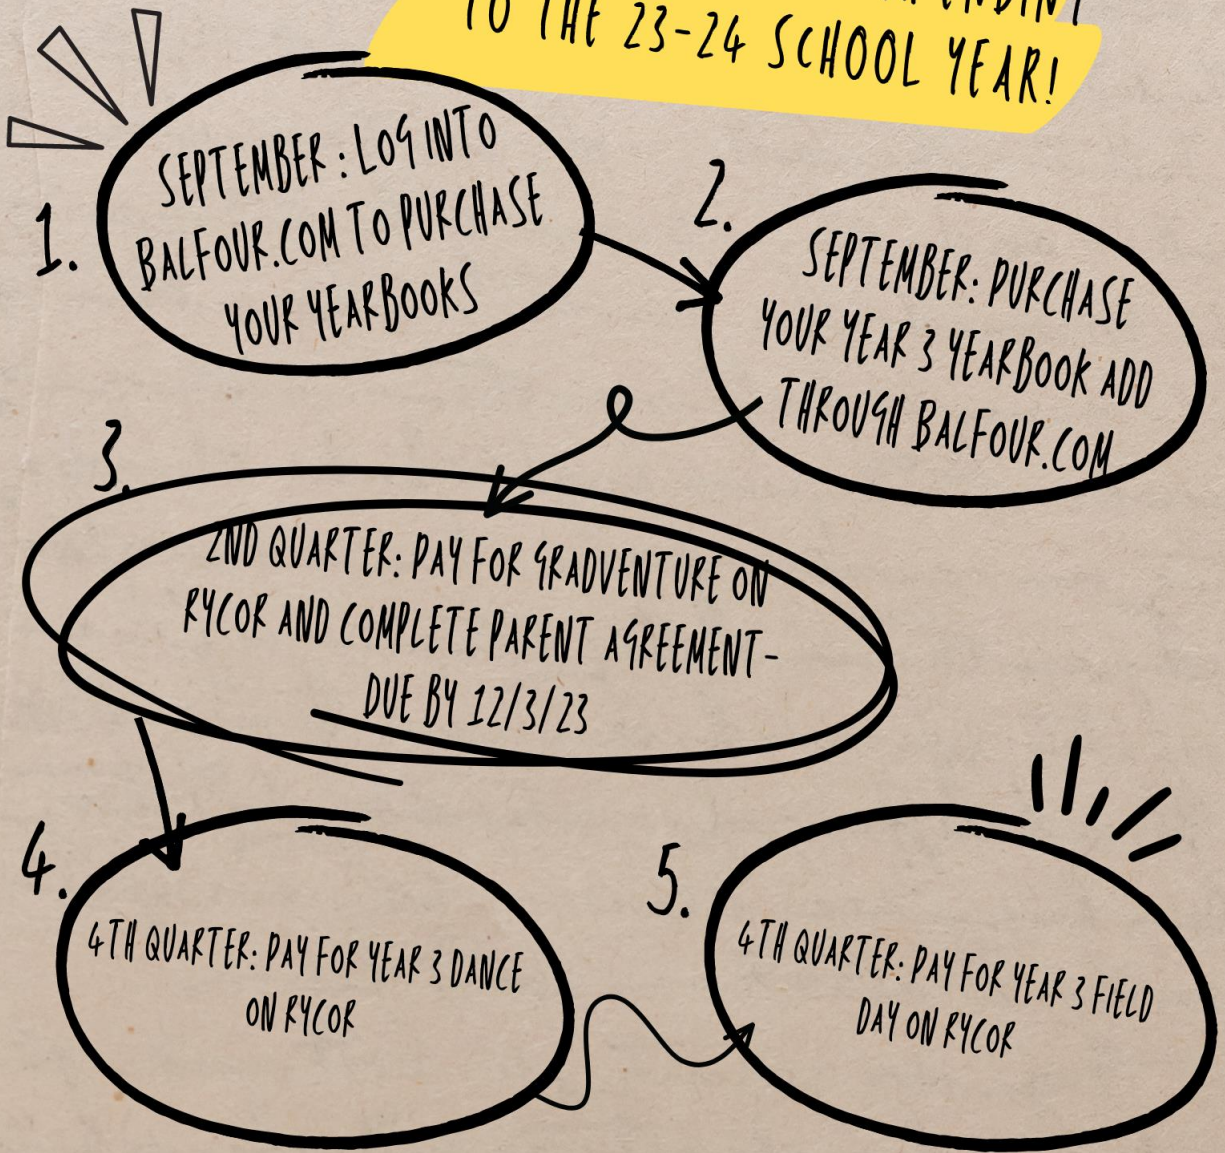 TO THE 23-24 SCHOOL YEAR!
1.
SEPTEMBER: LOG INTO
BALFOUR.COM TO PURCHASE
YOUR YEARBOOKS
2.
SEPTEMBER: PURCHASE
YOUR YEAR 3 YEARBOOK ADD
THROUGH BALFOUR.COM
3.
2ND QUARTER: PAY FOR GRADVENTURE ON
RYCOR AND COMPLETE PARENT AGREEMENT-
DUE BY 12/3/23
4.
4TH QUARTER: PAY FOR YEAR 3 DANCE
ON RYCOR
5.
4TH QUARTER: PAY FOR YEAR 3 FIELD
DAY ON RYCOR